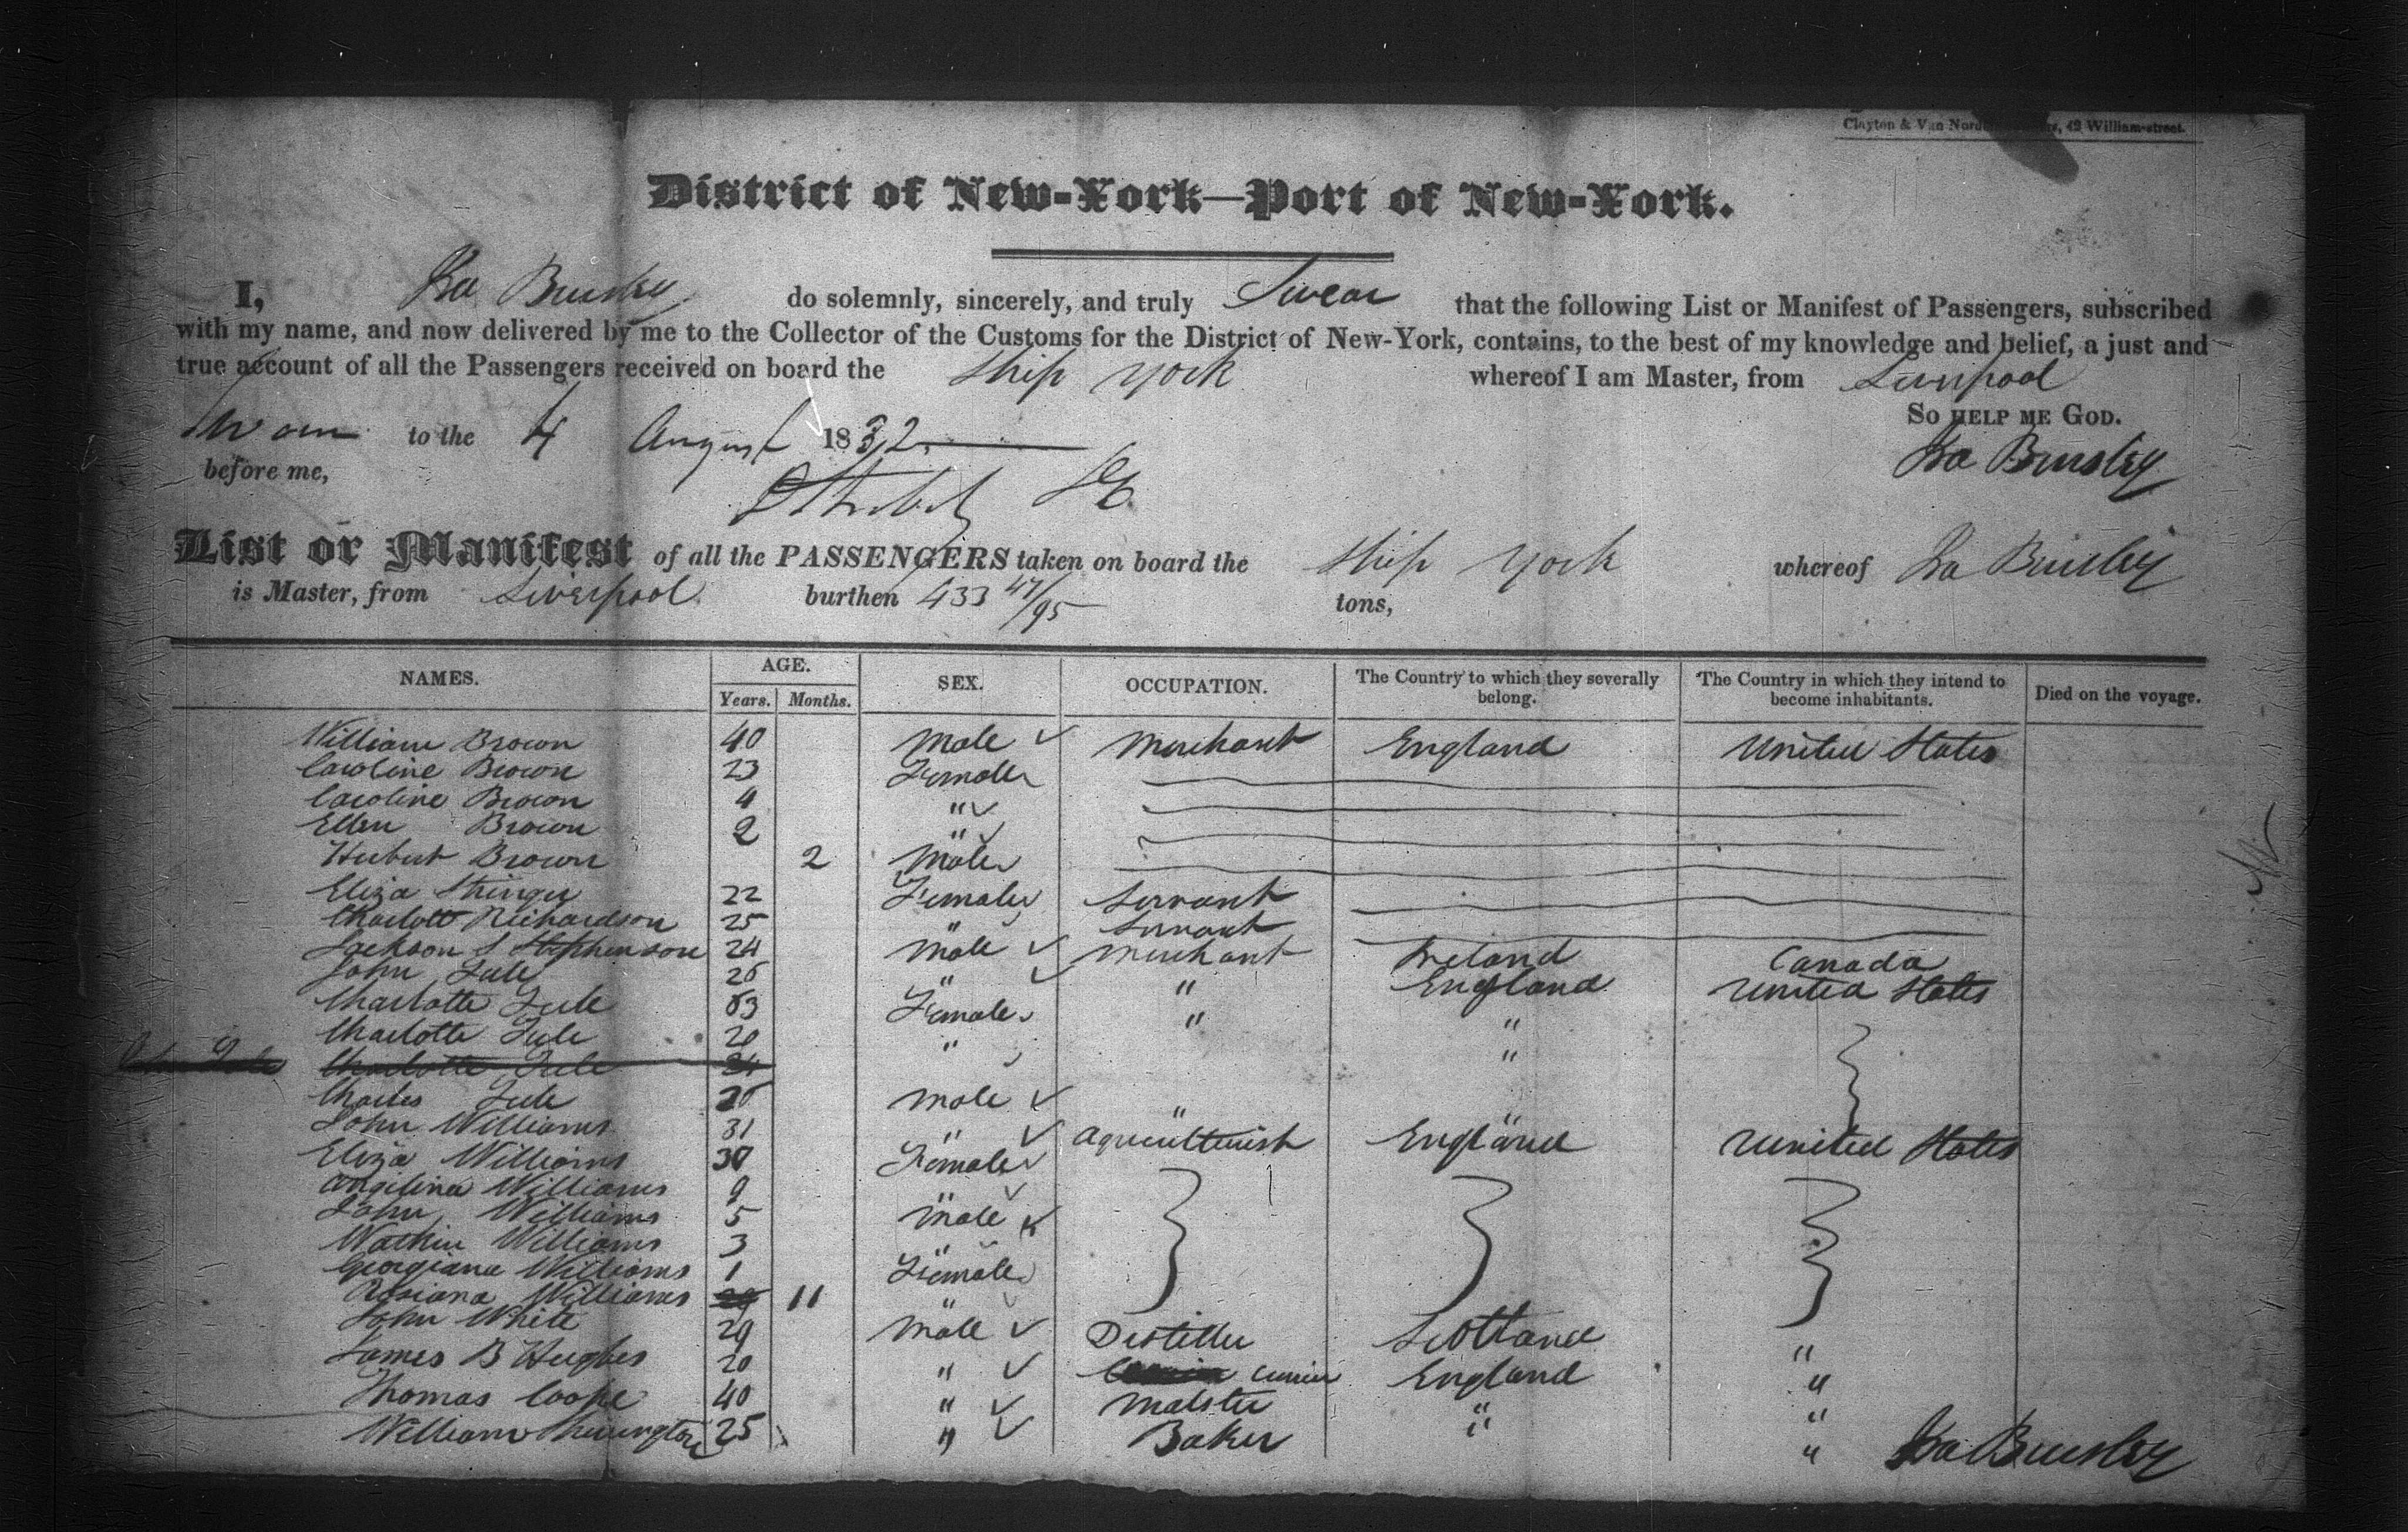 Clayton & Van Norden, 42 William-street.
District of New-York—Port of New-York.
I, Ira Bursley do solemnly, sincerely, and truly Swear that the following List or Manifest of Passengers, subscribed
with my name, and now delivered by me to the Collector of the Customs for the District of New-York, contains, to the best of my knowledge and belief, a just and
true account of all the Passengers received on board the Ship York whereof I am Master, from Liverpool
So HELP ME GOD.
Sworn to the 4 August 1832.
before me,
Ira Bursley
List or Manifest of all the PASSENGERS taken on board the Ship York whereof Ira Bursley
is Master, from Liverpool burthen 433 47/95 tons,
NAMES. AGE. Years. Months. SEX. OCCUPATION. The Country to which they severally belong. The Country in which they intend to become inhabitants. Died on the voyage.
William Brown 40 Male Merchant England United States
Caroline Brown 23 Female
Caroline Brown 4 "
Ellen Brown 2 "
Hubert Brown 2 Male
Eliza Stringer 22 Female Servant
Charlotte Richardson 25 " Servant
Jackson S Stephenson 24 Male Merchant Ireland Canada
John 26 " " England United States
Charlotte 63 Female " "
Charlotte 20 " "
Charlotte
Charles Male "
John Williams 31 " Agriculturist England United States
Eliza Williams 30 Female
Angelina Williams 9 "
John Williams 5 Male
Watkin Williams 3 "
Georgiana Williams 1 Female
Rosiana Williams 11 "
John White 29 Male Distiller Scotland "
James B Hughes 20 " Currier England "
Thomas Coope 40 " Malster " "
William 25 " Baker " "
Ira Bursley